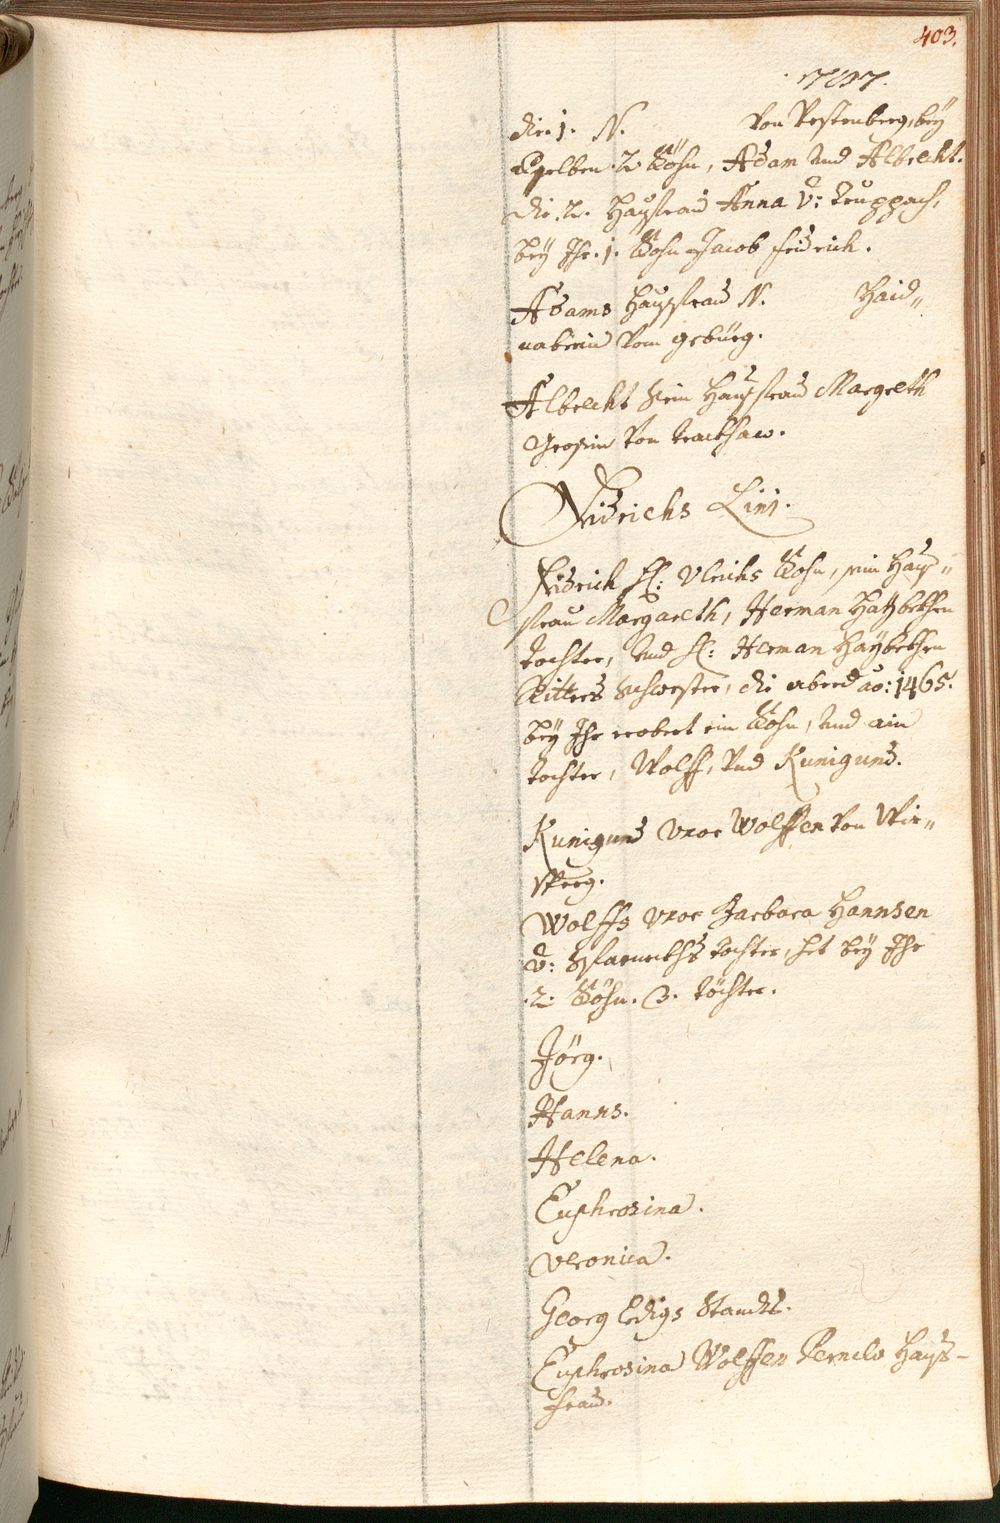 403.
die .1. N. von Vestenberg, bey
2 Söhn, Adam und Albrecht.
die .2. Haußfrau Anna v: Truppach,
bey Ihr .1. Sohn Jacob fridrich.
Adams Haußfrau N. Haid„
nabin vom gebürg.
Albrecht sein Haußfrau Margreth
Grosin von trockhaw.
Fridrichs Lini.
Fridrich H: Vlrichs Sohn, sein Hauß„
frau Margareth, Herman
tochter, und H: Herman
Ritters schwester, die ao: 1465.
bey Ihr ein Sohn, und ain
tochter, Wolff, Vnd Kunigund.
Kunigund vxor Wolffen von Wir„
sperg.
Wolffs vxor Barbara Hannsen
v: tochter, het bey Ihr
.2. Söhn. 3. töchter.
Jörg.
Hanns.
Helena.
Euphrosina.
Veronica.
Georg ledigs Standts.
Euphrosina Wolffen Hauß-
frau.